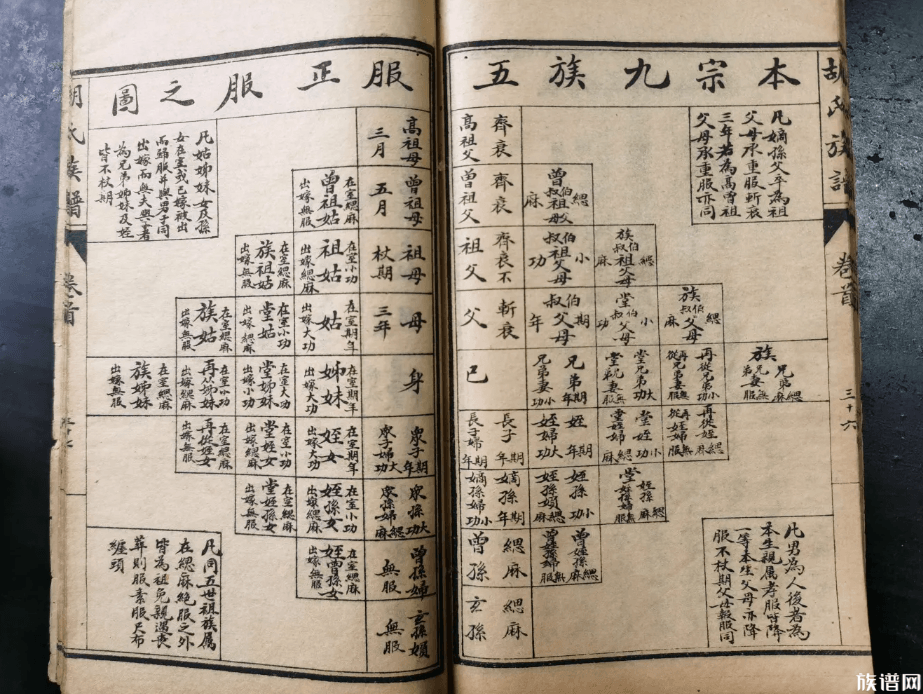 本宗九族五
服正服之圖
胡氏族譜
卷首
三十六
凡嫡孫父卒為祖
父母承重服斬衰
三年若為高曾祖
父母承重服亦同
高祖父
齊衰
曾祖父
齊衰
曾伯叔祖父母
緦麻
祖父
齊衰不
伯叔祖父母
小功
族伯叔祖父母
緦麻
父
斬衰
伯叔父母
期年
堂伯叔父母
小功
族伯叔父母
緦麻
己
兄弟期年
兄弟妻小功
堂兄弟大功
堂兄弟妻無服
再從兄弟小功
再從兄弟妻無服
族兄弟緦麻
族兄弟妻無服
長子期年
長子婦期年
姪期年
姪婦大功
堂姪小功
堂姪婦緦麻
再從姪緦麻
再從姪婦無服
嫡孫期年
嫡孫婦小功
姪孫小功
姪孫婦緦麻
堂姪孫緦麻
堂姪孫婦無服
曾孫
緦麻
曾姪孫緦麻
曾姪孫婦無服
玄孫
緦麻
凡男為人後者為
本生親属孝服皆降
一等本生父母亦降
服不杖期父母報服同
高祖母
三月
曾祖母
五月
曾祖姑
在室緦麻
出嫁無服
祖母
杖期
祖姑
在室小功
出嫁緦麻
族祖姑
在室緦麻
出嫁無服
母
三年
姑
在室期年
出嫁大功
堂姑
在室小功
出嫁緦麻
族姑
在室緦麻
出嫁無服
身
姊妹
在室期年
出嫁大功
堂姊妹
在室大功
出嫁小功
再从姊妹
在室小功
出嫁緦麻
族姊妹
在室緦麻
出嫁無服
衆子期年
衆子婦大功
姪女
在室期年
出嫁大功
堂姪女
在室小功
出嫁緦麻
再從姪女
在室緦麻
出嫁無服
衆孫大功
衆孫婦緦麻
姪孫女
在室小功
出嫁緦麻
堂姪孫女
在室緦麻
出嫁無服
曾孫婦
無服
姪曾孫女
在室緦麻
出嫁無服
玄孫婦
無服
凡姑姊妹女及孫
女在室或已嫁被出
而歸服並與男子同
出嫁而無夫與子者
為兄弟姊妹及姪
皆不杖期
凡同五世祖族属
在緦麻絶服之外
皆為袒免親遇喪
葬則服素服尺布
纏頭
胡氏族譜
卷首
族谱网